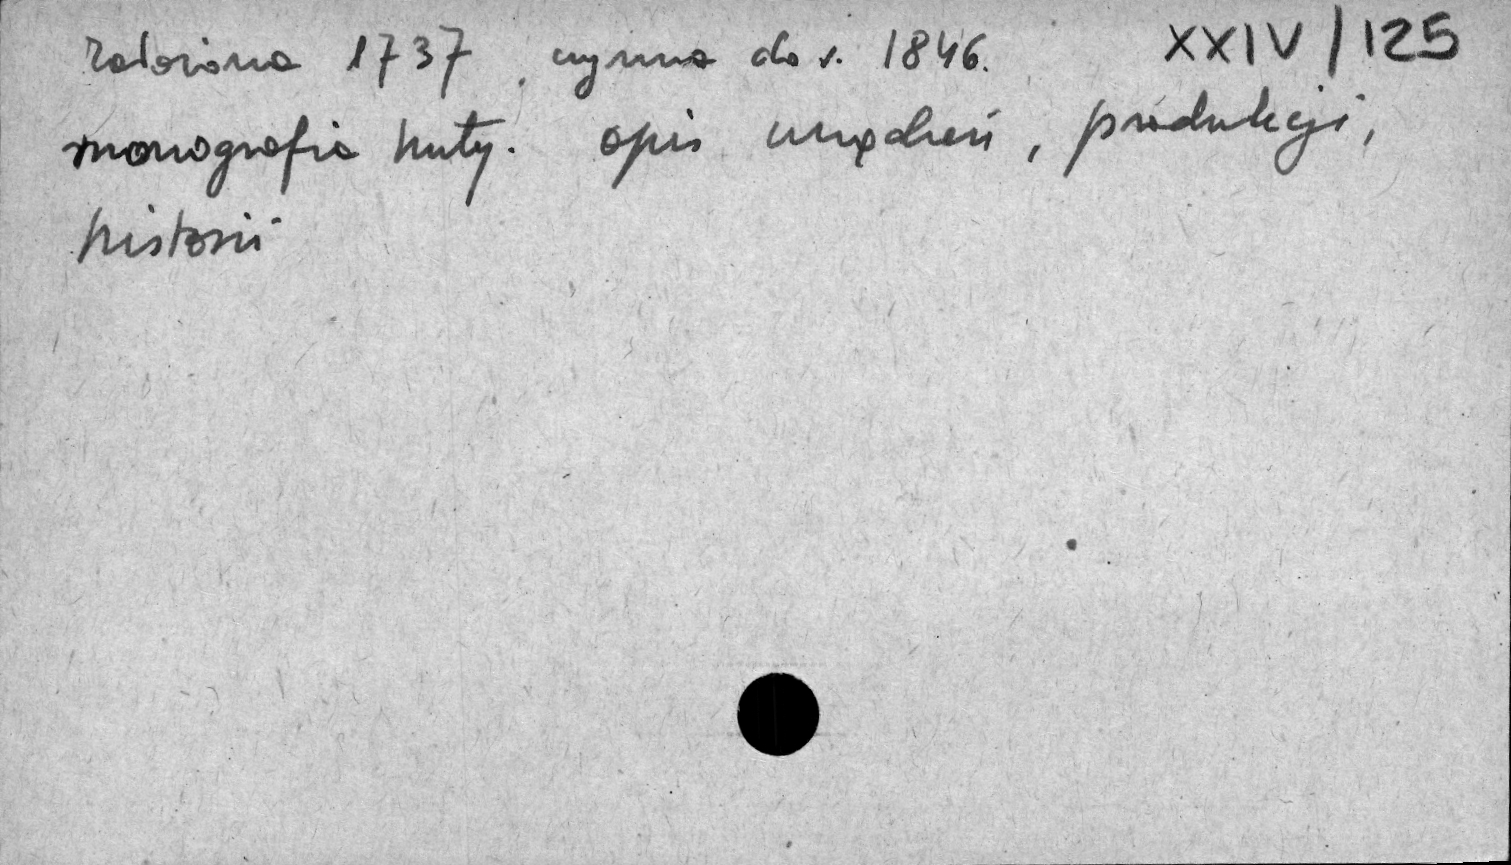 założona 1737, czynna do r. 1846. XXIV/125
monografia huty. opis urządzeń, produkcji,
historii